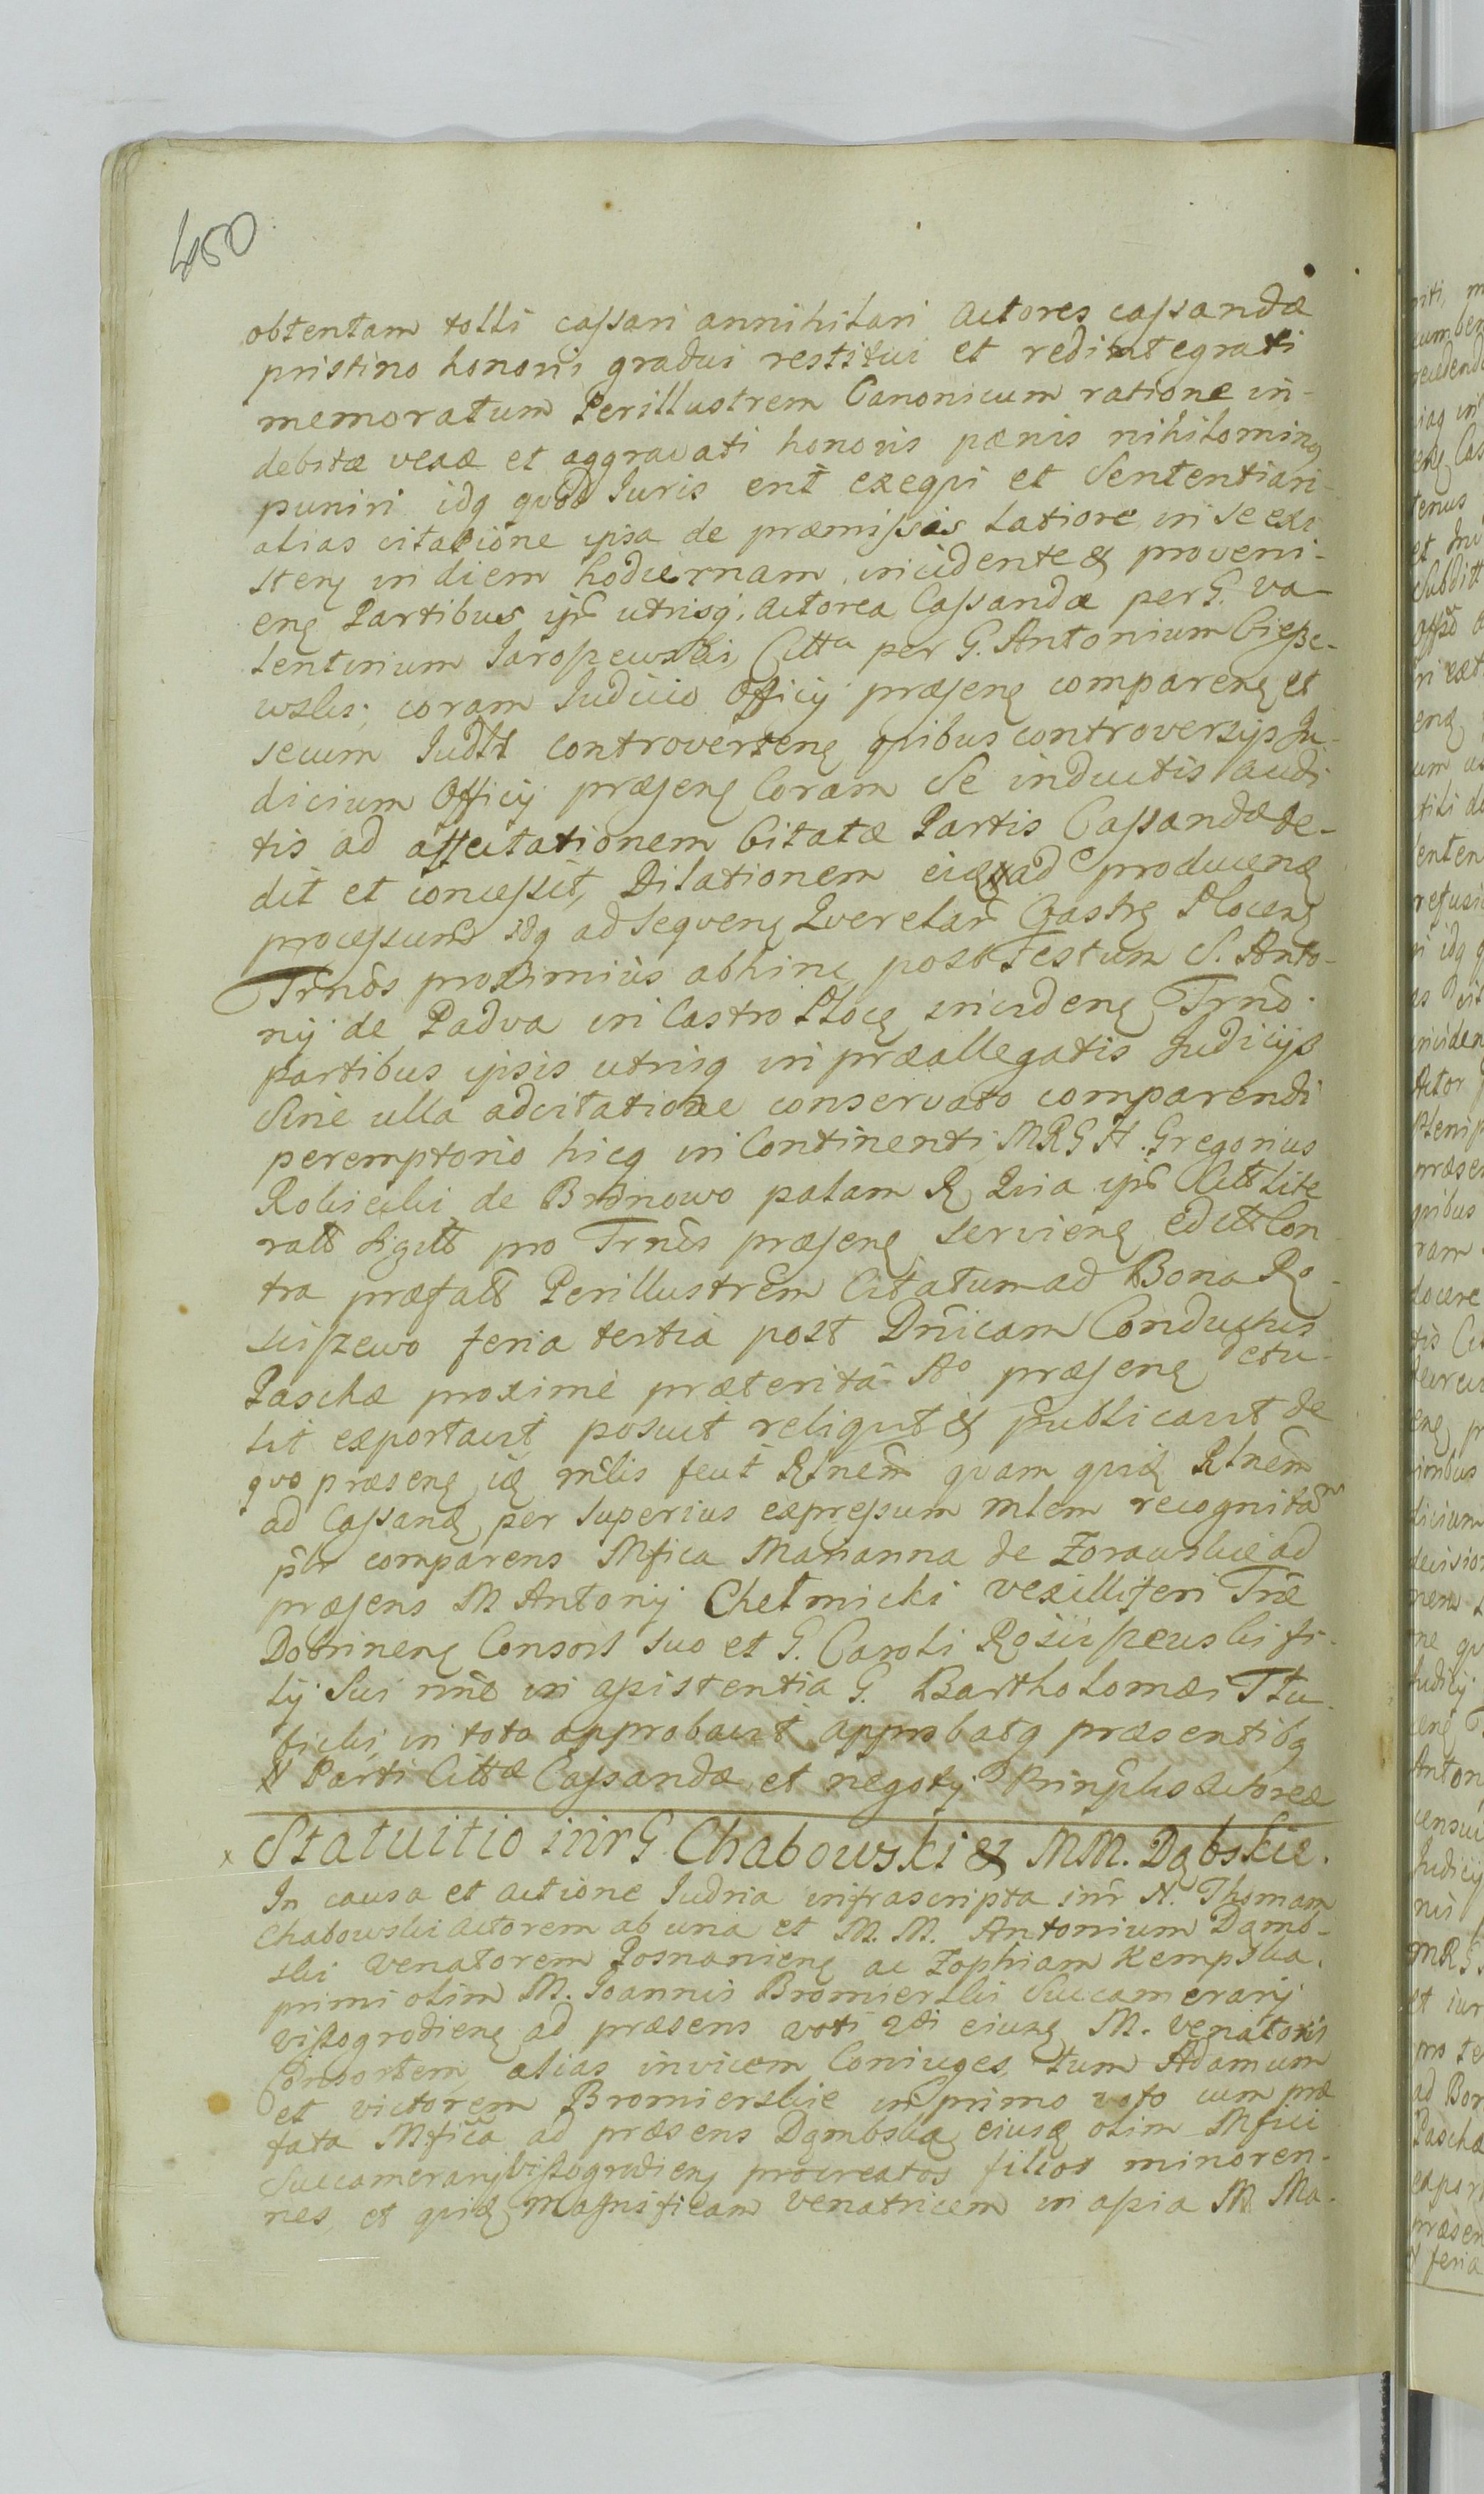 450
obtentam tolli cassari annihilari Actores cassandæ
pristino honoris gradui restitui et redintegrari
memoratum Perillustrem Canonicum ratione in-
debitæ vexæ et aggravati honoris pænis nihilominq
puniri idq quod Iuris erit exeqvi et Sententiari
alias citatione ipsa de præmissis latiore in se exi
stenς in diem hodiernam incidente & proveni-
enς Partibus utrisq. Actorea Cassandæ per G. Va
lentinium Jaroszewski, Citta per G. Antonium Ciesze-
wski; coram Judicio Officij præsenς comparenς et
secum Judltt controvertenς qvibus controversijs Ju-
dicium Officij præsenς Coram Se inductis audi
tis ad affectationem Citatæ Partis Cassandæ de-
dit et concessit, Dilationem ad producenς
processum idq ad seqvenς Qverelar Castrς Plocenς
Trnos proximiùs abhinc post Festum S. Anto-
nij de Padva in Castro Plocς incidenς Trno
partibus ipsis utrisq in præallegatis Judicijs
Sine ulla adcitatione conservato comparendi
peremptorio hicq in Continenti MRGH. Gregorius
Robicki de palam R Qvia Citt Lite
ratt Sigltt pro Trnis præsenς servienς editt Con
tra præfatt Perillustrem Citatum ad Bona Ro-
sciszewo feria tertia post Dnicam Conductus
Paschæ proximè præterità Ao præsenς etu-
lit exportavit posuit reliqvit & publicavit de
qvo præsenς mlis fecit Rlnem qvam Rlnem
ad Cassanς per Superius expressum mlem recognitam
comparens Mfica Marianna de Zorawskie ad
præsens M Antonij Chełmicki vexilliferi Træ
Dobrinenς Consors suo et G. Caroli Rosciszewski fi-
lij Sui nne in assistentia G. Bartholomæi Tłu
bicki in toto approbavit approbatq præsentibq
Parti Cittæ Cassandæ et negotij Prinplis Actoreæ
x Statuitio intr G. Chabowski & MM. Dąbskie.
In causa et actione Judria infrascripta intr N. Thomam
Chabowski Actorem ab una et M. M. Antonium Damb-
ski Venatorem Posnanienς ac Zophiam Kempska
primi olim M. Joannis Bromierski Succamerarij
Vissogrodienς ad præsens voti 2di eiusς M. Venatoris
Consortem alias invicem Coniuges, tum Adamum
et Victorem Bromierskie in primo voto cum præ
fata Mfica ad præsens Dąmbska eiusς olim Mfici
Succamerarij Vissogrodienς procreatos filios minoren-
nes, et Magnificam Venatricem in assia M Ma-